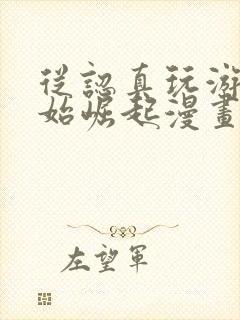 從認真玩游
始崛起漫畫
左望軍